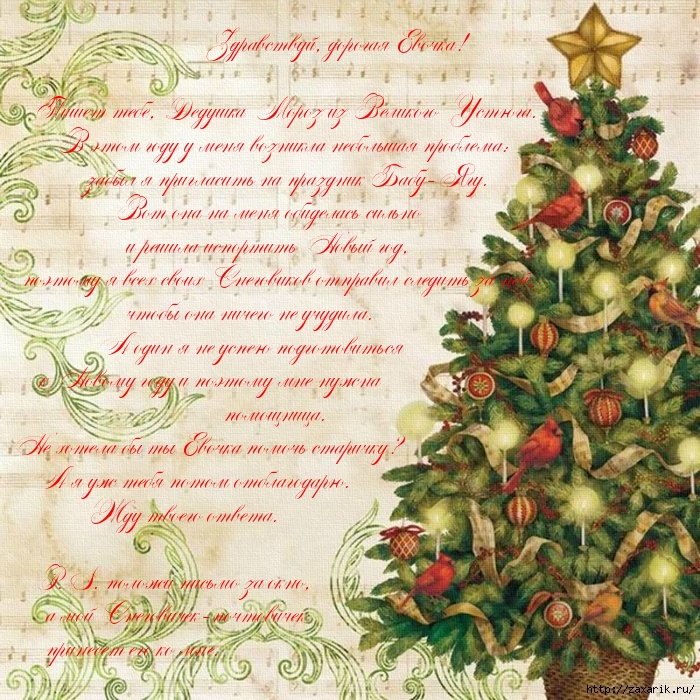 Здравствуй, дорогая Евочка!
Пишет тебе, Дедушка Мороз из Великого Устюга.
В этом году у меня возникла небольшая проблема:
забыл я пригласить на праздник Бабу-Ягу.
Вот она на меня обиделась сильно
и решила испортить Новый год,
поэтому я всех своих Снеговиков отправил следить за ней,
чтобы она ничего не учудила.
А один я не успею подготовиться
к Новому году и поэтому мне нужна
помощница.
Не хотела бы ты Евочка помочь старичку?
А я уж тебя потом отблагодарю.
Жду твоего ответа.
P. S. положи письмо за окно,
а мой Снеговичек-почтовичек
принесет его ко мне.
http://zaxarik.ru/